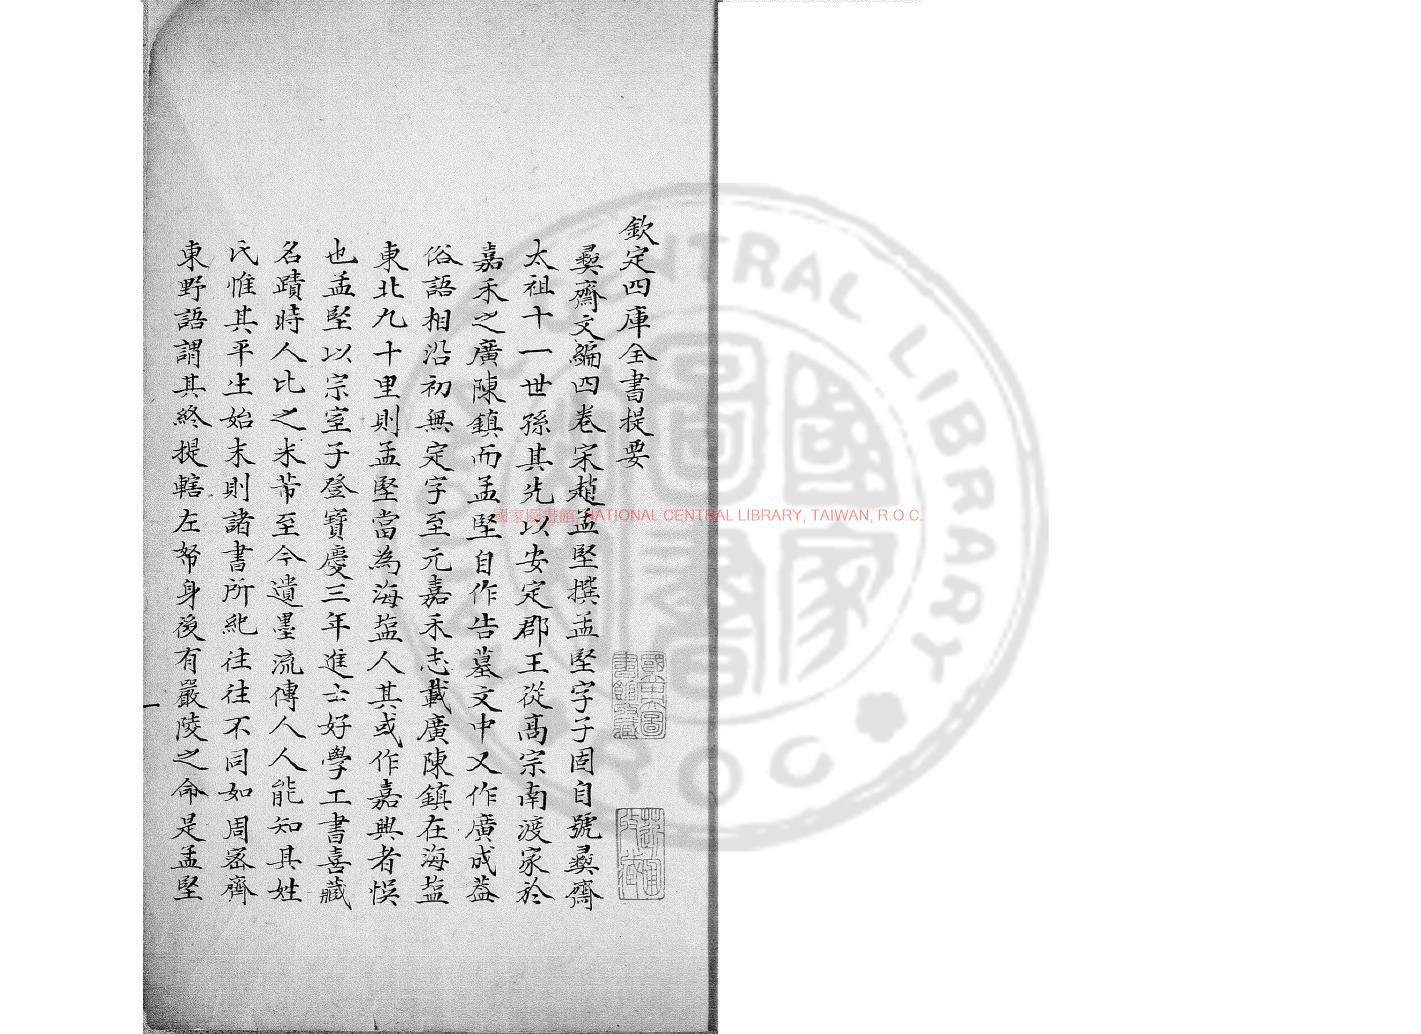 欽定四庫全書提要
彝齋文編四卷宋趙孟堅撰孟堅字子固自號彝齋
太祖十一世孫其先以安定郡王從髙宗南渡家於
嘉禾之廣陳鎮而孟堅自作告墓文中又作廣成葢
俗語相沿初無定字至元嘉禾志載廣陳鎮在海塩
東北九十里則孟堅當為海塩人其或作嘉興者悞
也孟堅以宗室子登寶慶三年進士好學工書喜藏
名蹟時人比之米芾至今遺墨流傳人人能知其姓
氏惟其平生始末則諸書所紀往往不同如周宻齊
東野語謂其終提轄左帑身後有嚴陵之命是孟堅
一
國家圖書館, NATIONAL CENTRAL LIBRARY, TAIWAN, R.O.C.
CENTRAL LIBRARY
R.O.C